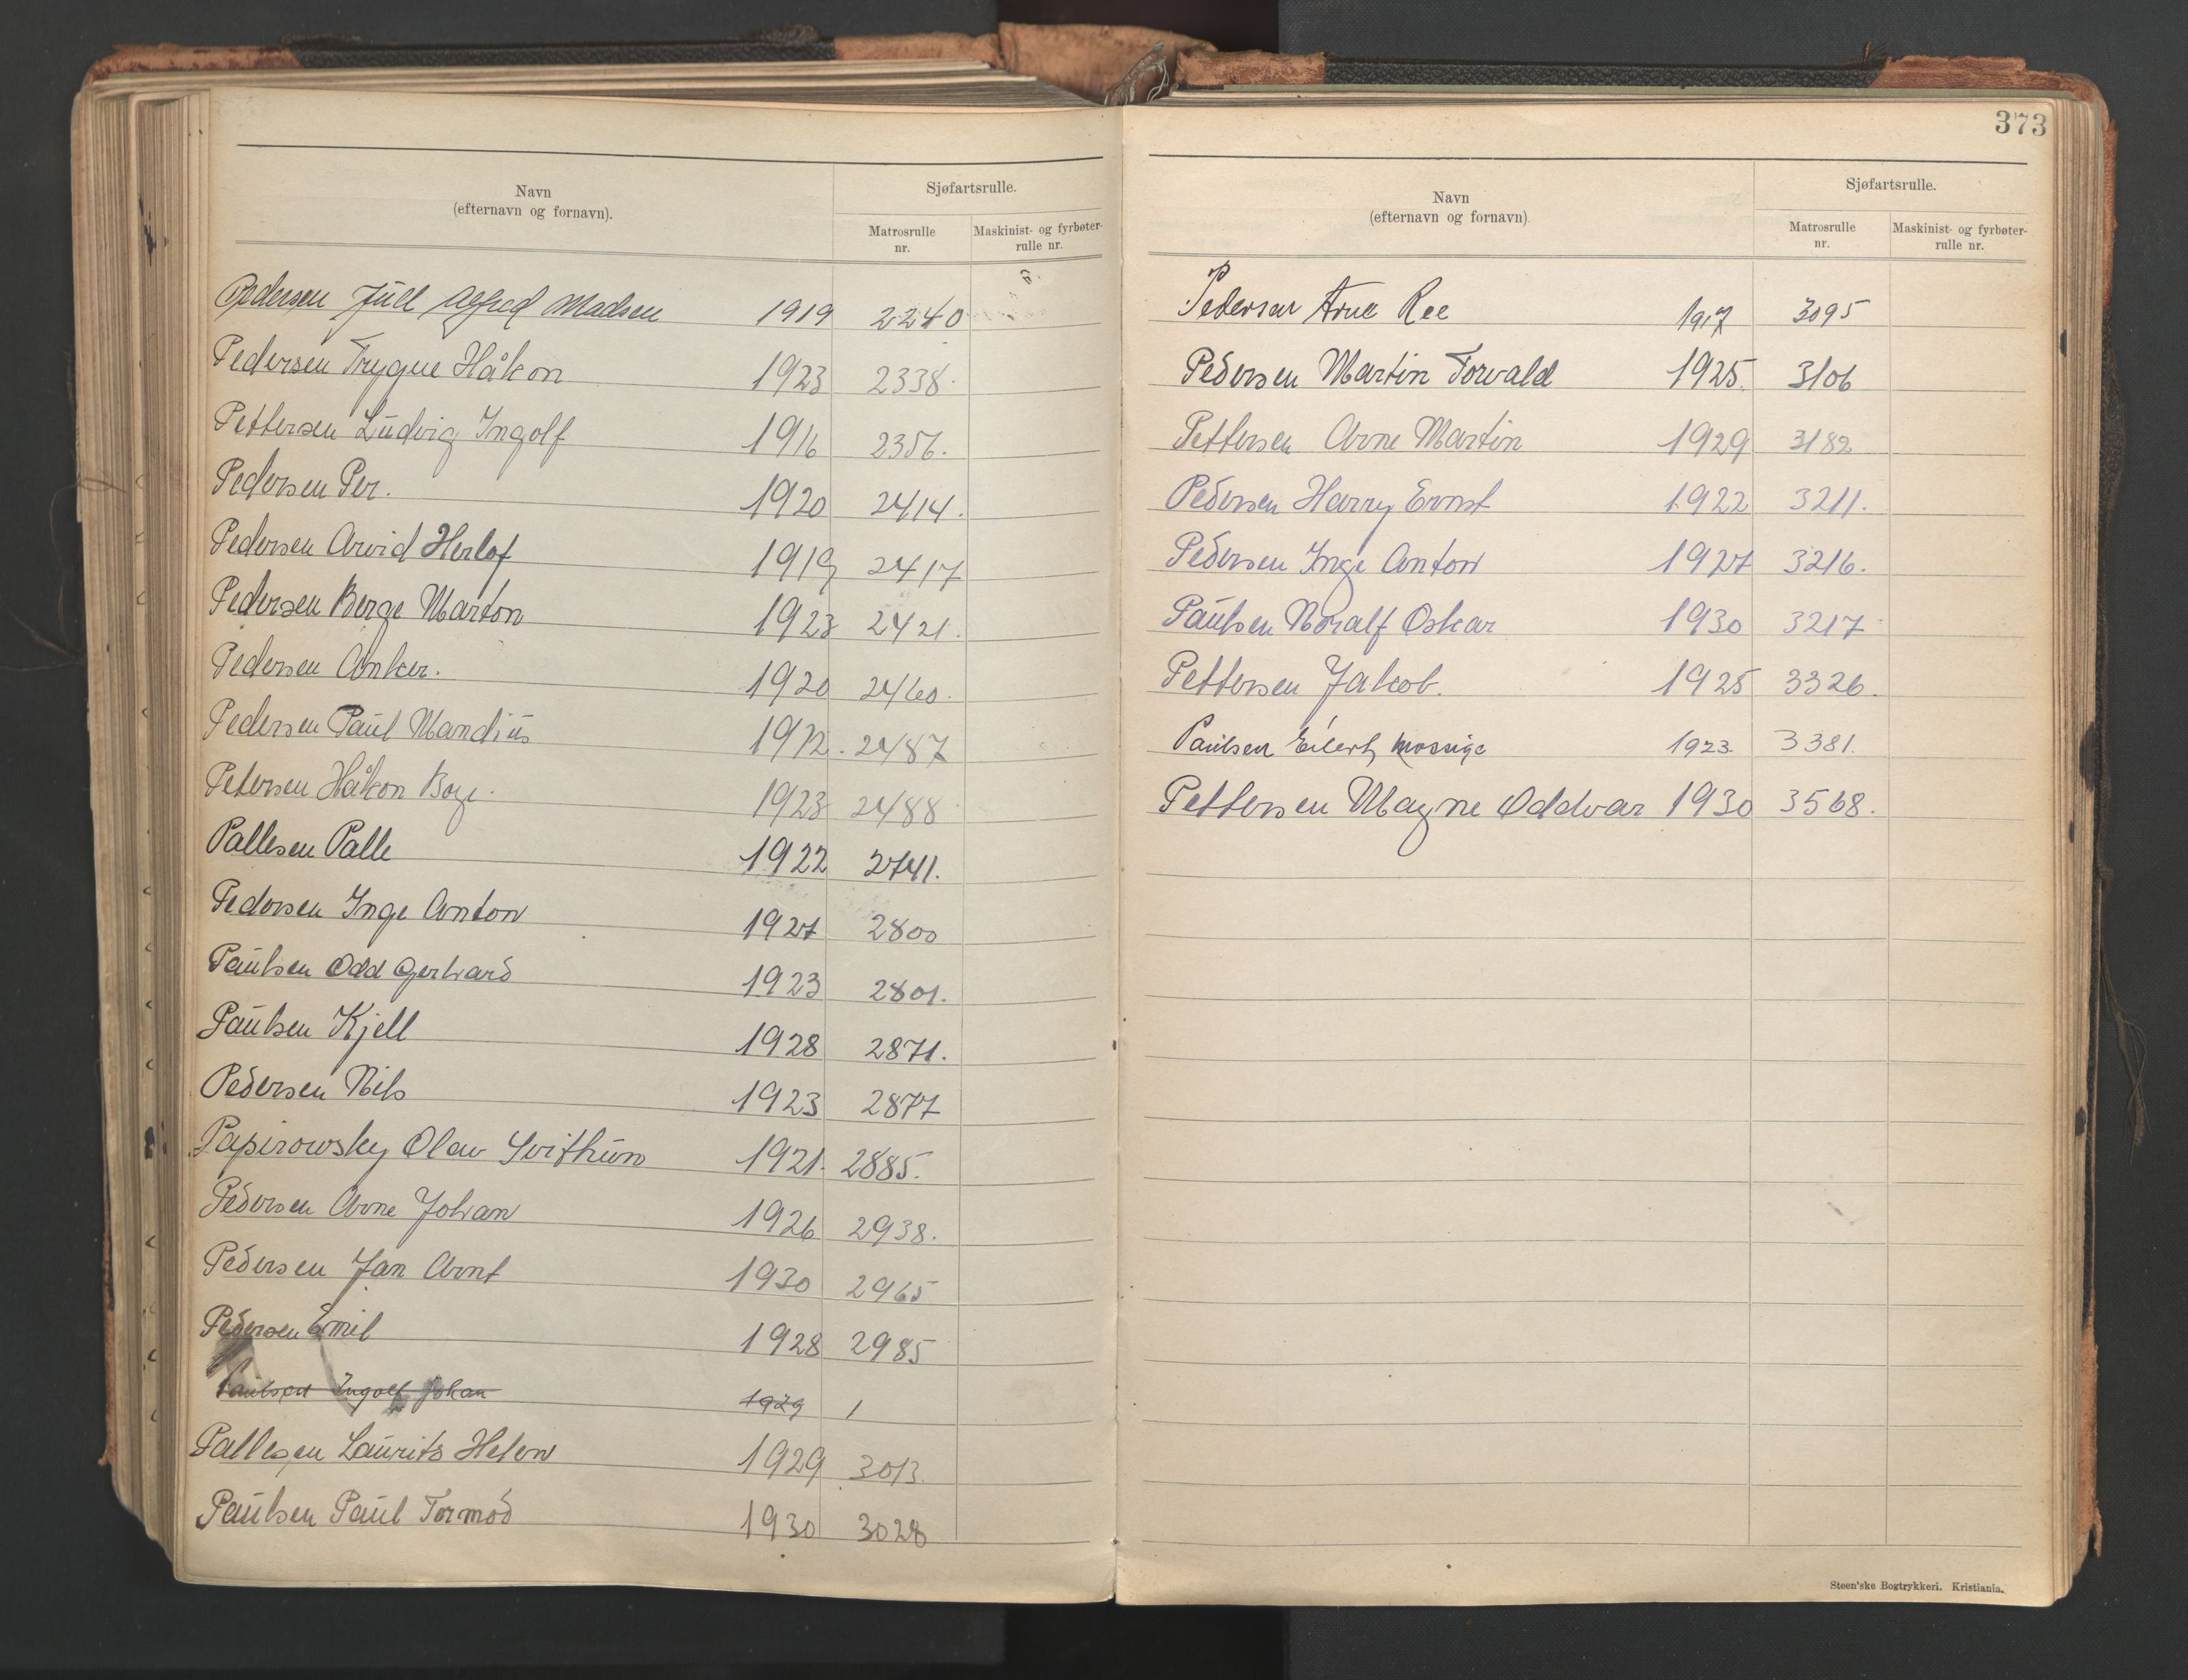 Navn
(efternavn og fornavn).
Sjøfartsrulle.
Matrosrulle
nr.
Maskinist- og fyrbøter-
rulle nr.
Pedersen Jull Alfred Madsen 1919 2240
Pedersen Trygve Håkon 1923 2338.
Pettersen Ludvig Ingolf 1916 2356.
Pedersen Per. 1920 2414.
Pedersen Arvid Herlof 1919 2417
Pedersen Berge Marton 1923 2421.
Pedersen Anker. 1920 2460.
Pedersen Paul Mandius 1912. 2487
Petersen Håkon 1923 2488
Pallesen Palle 1922 2741.
Pedersen Inge Anton 1927 2800
Paulsen Odd Gerhard 1923 2801.
Paulsen Kjell 1928 2871.
Pedersen Nils 1923 2877
Papirowsky Olav Svithun 1921. 2885.
Pedersen Arne Johan 1926 2938.
Pedersen Jan Arnt 1930 2965
Pedersen Emil 1928 2985
Paulsen Ingolf Johan 1929 1
Pallesen Laurits 1929 3013.
Paulsen Paul Tormod 1930 3028
373
Navn
(efternavn og fornavn)
Sjøfartsrulle.
Matrosrulle
nr.
Maskinist- og fyrbøter-
rulle nr.
Pedersen Arne Ree 1917 3095
Pedersen Martin Torvald 1925. 3106
Pettersen Arne Martin 1929 3182
Pedersen Harry Ernst 1922 3211.
Pedersen Inge Anton 1927 3216.
Paulsen Noralf Oskar 1930 3217
Pettersen Jakob. 1925 3326.
Paulsen Eilert Mossige 1923. 3381.
Pettersen Magne Oddvar 1930 3568.
Steen'ske Bogtrykkeri. Kristiania.